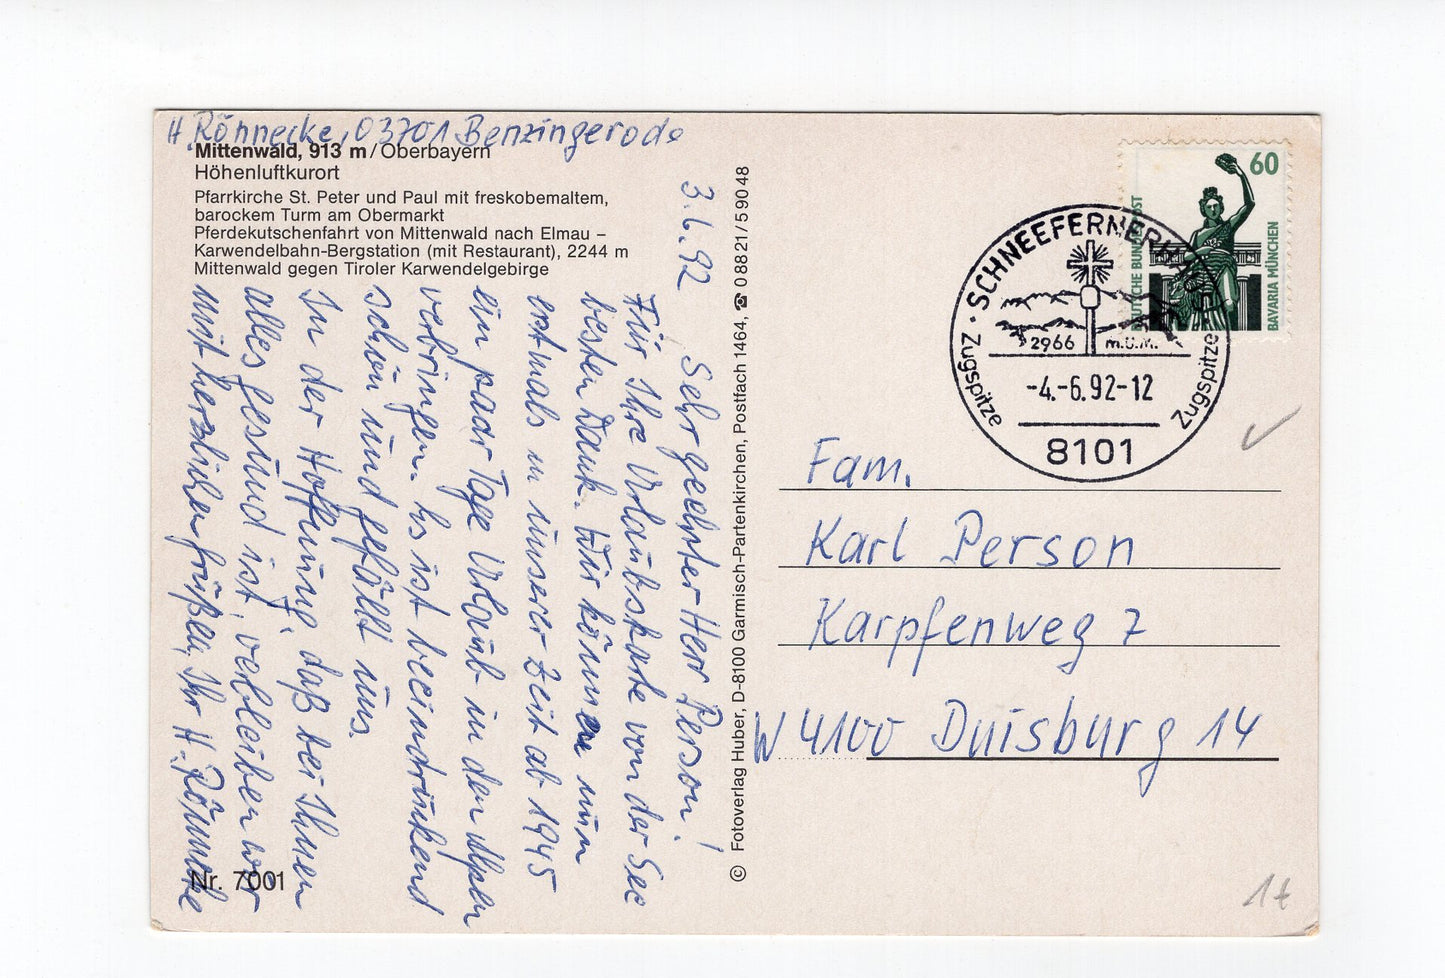 H. Rönnecke, 03701 Benzingerode
Mittenwald, 913 m/Oberbayern
Höhenluftkurort
Pfarrkirche St. Peter und Paul mit freskobemaltem,
barockem Turm am Obermarkt
Pferdekutschenfahrt von Mittenwald nach Elmau –
Karwendelbahn-Bergstation (mit Restaurant), 2244 m
Mittenwald gegen Tiroler Karwendelgebirge
3.6.92 Sehr geehrter Herr Person!
Für Ihre Urlaubskarte von der See
besten Dank. Wir können nun
erstmals in unserer Zeit ab 1945
ein paar Tage Urlaub in den Alpen
verbringen. Es ist beeindrukend
schön und gefällt uns.
In der Hoffnung, daß bei Ihnen
alles gesund ist, verbleiben wir
mit herzlichen Grüßen, Ihr H. Rönnecke
Nr. 7001
© Fotoverlag Huber, D-8100 Garmisch-Partenkirchen, Postfach 1464, ☎ 0 88 21 / 5 90 48
60
DEUTSCHE BUNDESPOST
BAVARIA MÜNCHEN
· SCHNEEFERNERHAUS
2966 m.ü.M.
Zugspitze
Zugspitze
-4.-6.92-12
8101
Fam.
Karl Person
Karpfenweg 7
W 4100 Duisburg 14